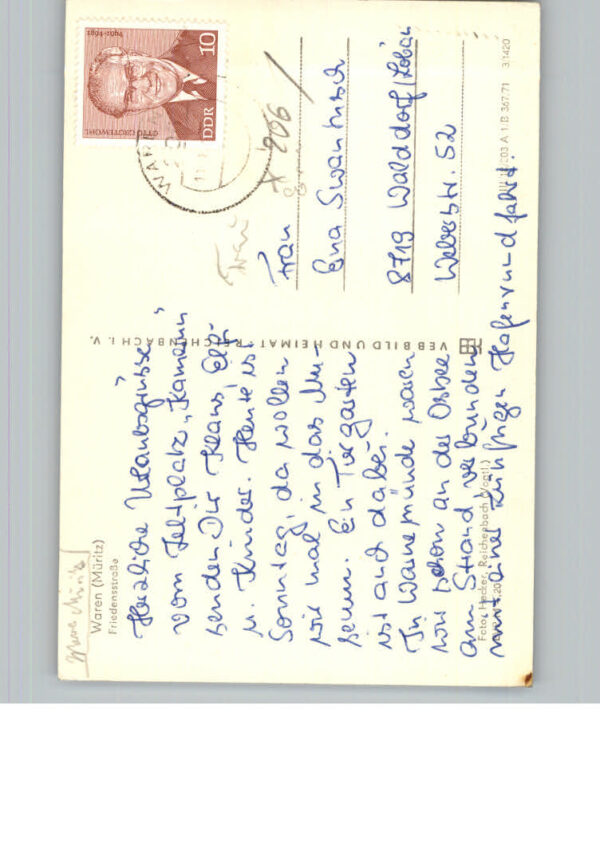 Waren (Müritz)
Friedensstraße
Herzliche Urlaubsgrüsse
vom Zeltplatz „Kamerun"
senden Dir Klaus, Elb-
u. Kinder. Heute ist
Sonntag, da wollen
wir mal in das Mu-
seum. Ein Tiergarten
ist auch dabei.
In Warnemünde waren
wir schon an der Ostsee
am Strand verbunden
mit einer Hafenrundfahrt.
Foto: Hecker, Reichenbach (Vogtl.)
VEB BILD UND HEIMAT REICHENBACH i. V.
OTTO GROTEWOHL
1894-1964
10
DDR
WAR
X 206
Frau
Frau
Ena
8719 Walddorf/Löbau
Weberstr. 52
A 1/B 367/71 3 1420